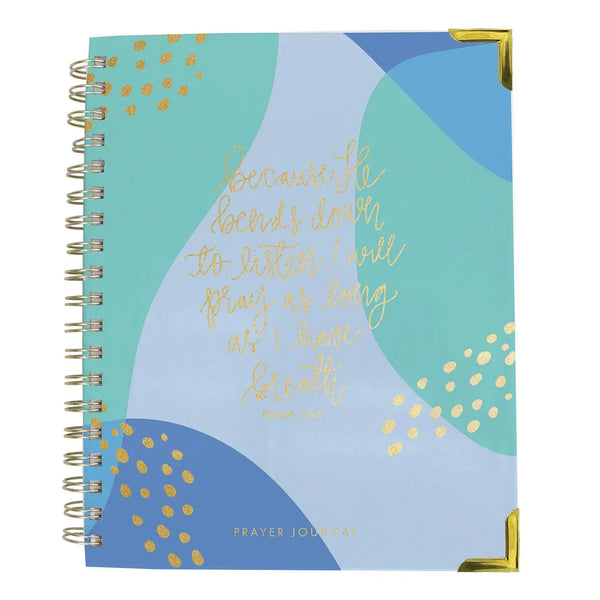 because He
bends down
to listen I will
pray as long
as I have
breath
PSALM 116:2
PRAYER JOURNAL